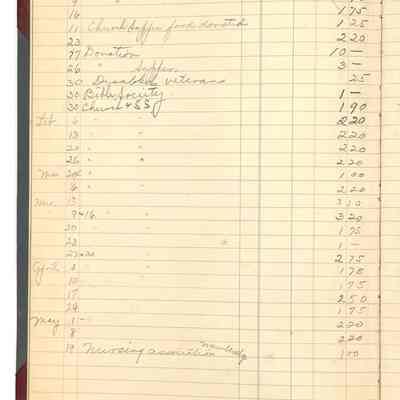 16 " 1 75
11 Church Supper food donated 1 25
23 2 20
27 Donation 10 —
26 " Supper 3 —
30 Disabled veterans 25
30 Bible Society 1 —
30 Church & SS 1 90
Feb. 6 " " 2 20
13 " " 2 20
20 " " 2 20
26 " " 2 20
Mar 20 " " 1 00
6 " " 2 20
13 " "
9 & 16 " " 3 20
20 " " 1 75
23 " 1 —
27 & 30 " " 2 75
3 " " 1 75
10 " " 1 75
17 2 50
24 1 75
May 1 — 2 20
8 2 20
19 Nursing association 1 00